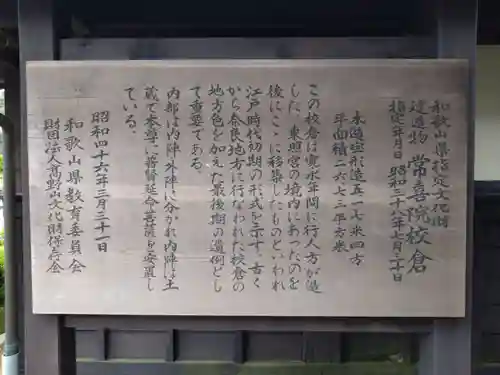 和歌山県指定文化財
建造物 常喜院校倉
指定年月日 昭和三十八年七月三十日
木造宝形造五・一七米四方
平面積二六・七三平方米
この校倉は寛永年間に行人方が造
した、東照宮の境内にあったのを
後にここに移築したものといわれ
江戸時代初期の形式を示す。古く
から奈良地方に行なわれた校倉の
地方色を加えた最後期の遺例とし
て重要である。
内部は内陣、外陣に分かれ内陣には土
蔵で本尊に普賢延命菩薩を安置し
ている。
昭和四十六年三月三十一日
和歌山県教育委員会
財団法人高野山文化財保存会